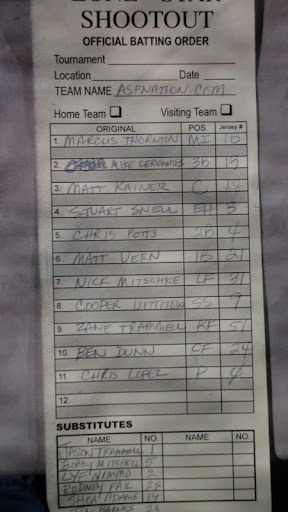 LONE STAR
SHOOTOUT
OFFICIAL BATTING ORDER
Tournament
Location Date
TEAM NAME ASPNATION.COM
Home Team Visiting Team
ORIGINAL POS. Jersey #
1. MARCUS THORNTON MI 15
2. MIKE CERVANTES 3B 13
3. MATT KAINER C 18
4. STUART SNELL EH 3
5. CHRIS POTTS 2B 4
6. MATT VERN 1B 21
7. NICK MITSCHKE LF 31
8. COOPER SS 9
9. ZANE TRAMMELL RF 51
10. BEN DUNN CF 24
11. CHRIS LOPEZ P 0
12.
SUBSTITUTES
NAME NO. NAME NO.
JASON TRAMMELL 1
BOBBY MITCHELL 5
LYF NIMMO 2
RODNEY FAIR 22
SHEA ADAMS 14
BANKS 23